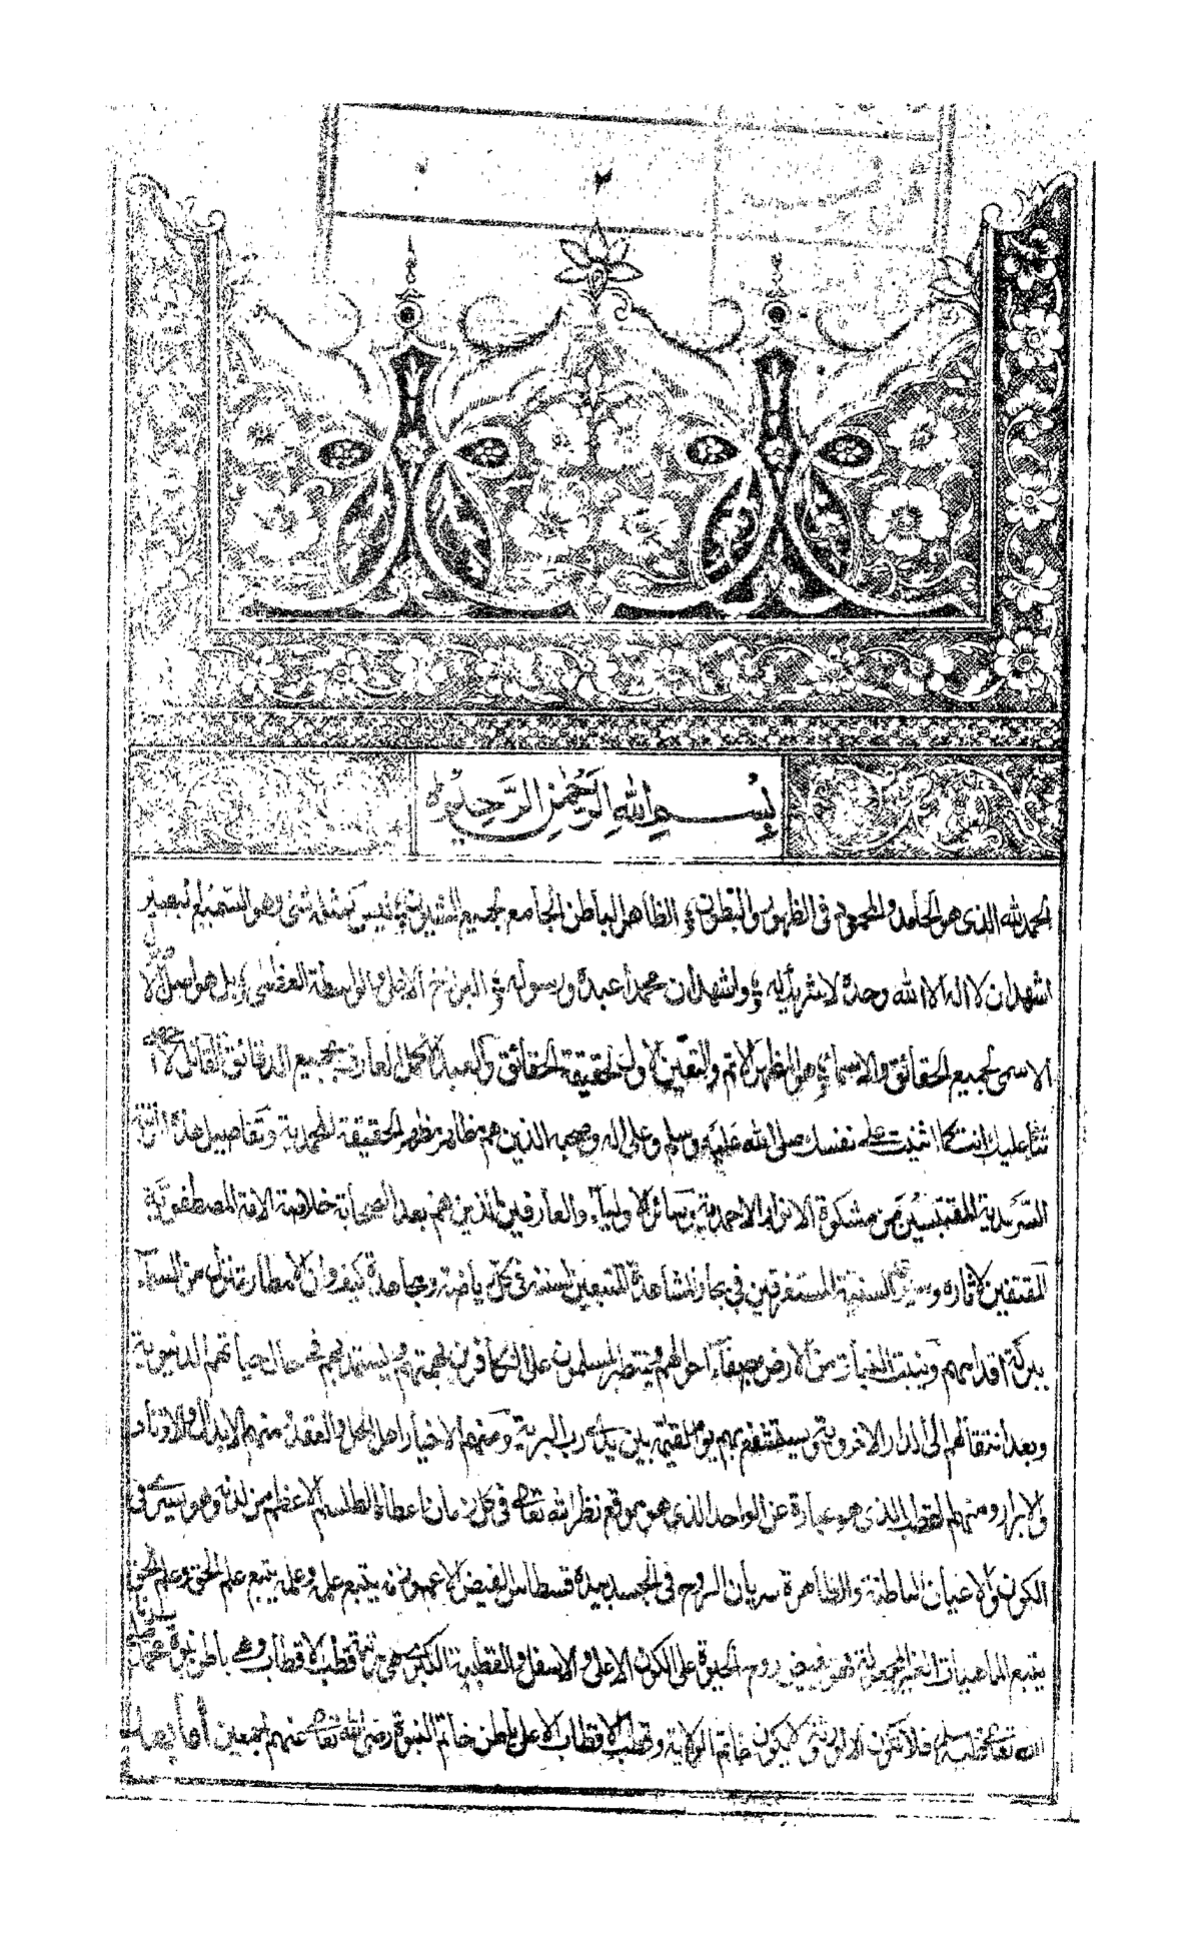 ٢
بسم الله الرحمن الرحيم
الحمد لله الذى هو الحامد والمحمود فى الظهور والبطون والظاهر الباطن الجامع لجميع الشيون ليس كمثله شئ وهو السميع البصير
اشهد ان لا اله الا الله وحده لا شريك له واشهد ان محمدا عبده ورسوله البرزخ الواسطة العظمى بل هو
الاسمى لجميع الحقائق والاسماء هو المظهر الاتم والتعين الاول حقيقة الحقائق والعبد الاكمل العارف بجميع الدقائق القائل لا
ثناء عليك انت كما اثنيت على نفسك صلى الله عليه وسلم وعلى اله وصحبه الذين هم مظاهر مظهر الحقيقة المحمدية وتفاصيل هذه
السرمدية المقتبسين من مشكوة الانوار الاحمدية وسائر الاولياء والعارفين الذين هم بعد الصحابة خلاصة الامة المصطفوية
المقتفين لاثاره السنية المستغرقين فى بحار المشاهدة المتبعين لسننه فى كل رياضة ومجاهدة كيف وان الامطار تنزل من السماء
ببركة اقدامهم وينبت النبات من الارض بصفاء احوالهم وينتصر المسلمون على الكافرين بهمتهم ويستمد بهم فى حال حياتهم الدنيوية
وبعد انتقالهم الى الدار الاخروية ويستشفع بهم يوم القيمة بين يدى رب البرية ومنهم الاخيار اهل الحل والعقد منهم الابدال والاوتاد
والابرار ومنهم القطب الذى هو عبارة عن الواحد الذى هو موقع نظر الله تعالى فى كل زمان اعطاه الطلسم الاعظم من لدنه وهو يسرى فى
الكون والاعيان الباطنة والظاهرة سريان الروح فى الجسد بيده قسطاس الفيض الاعم وزنه يتبع علمه وعلمه يتبع علم الحق وعلم الحق
يتبع الماهيات الغير المجعولة فهو يفيض روح الحيوة على الكون الاعلى والاسفل والقطبية الكبرى هى مرتبة قطب الاقطاب وهى باطن نبوة
الله تعالى عليه وسلم فلا تكون الا لورثته لا يكون خاتم الولاية وقطب الاقطاب الا على باطن خاتم النبوة رضى الله تعالى عنهم اجمعين اما بعد